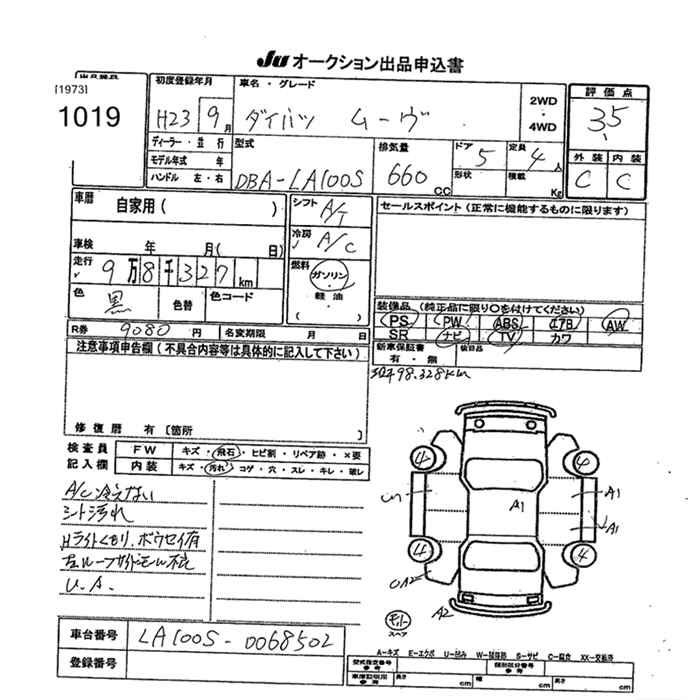 Ju オークション出品申込書
出品番号
[1973]
1019
初度登録年月
H23 9月
車名・グレード
ダイハツ ムーヴ
2WD
・
4WD
評価点
3.5
ディーラー・並行
モデル年式 年
ハンドル 左・右
型式
DBA-LA100S
排気量
660 CC
ドア 5
形状
定員 4人
積載 Kg
外装 内装
C C
車歴
自家用( )
シフト A/T
セールスポイント(正常に機能するものに限ります)
車検 年 月( 日)
冷房 A/C
走行
9万8千327km
燃料
ガソリン
・
軽油
( )
色 黒 色替 色コード
装備品(純正品に限り○を付けてください)
PS PW ABS エアB AW
SR ナビ TV カワ
R券 9080円 名変期限 月 日
新車保証書
有・無
装備品
現 98.328km
注意事項申告欄(不具合内容等は具体的に記入して下さい)
修復歴 有〔箇所 〕
検査員
記入欄
FW キズ・飛石・ヒビ割・リペア跡・×要
内装 キズ・汚れ・コゲ・穴・スレ・キレ・破レ
A/C冷えない
シート汚れ
Hライトくもり、ボウセイ有
左ルーフサイドモール不良
U.A.
4 4
A1 A1
A1
4 4
A2
スペア
車台番号 LA100S-0068502
登録番号
A-キズ E-エクボ U-凹み W-波修跡 S-サビ C-腐食 XX-交換済
型式指定番号
参考
類別区分番号
参考
車庫証明用
参考
長さ cm 幅 cm 高さ cm